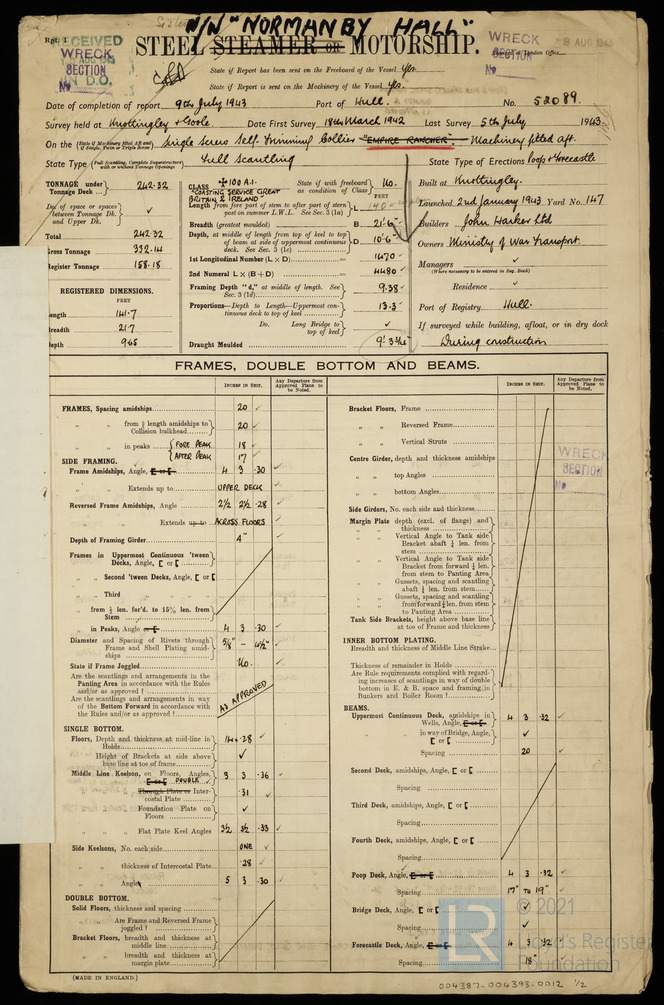 N/N "NORMANBY HALL"
Rpt. 1
RECEIVED
WRECK
SECTION
IN D.O.
No
STEEL STEAMER OR MOTORSHIP.
WRECK
SECTION
No
9 AUG 1943
State if Report has been sent on the Freeboard of the Vessel Yes.
State if Report is sent on the Machinery of the Vessel Yes.
Date of completion of report 9th July 1943 Port of Hull. No. 52089.
Survey held at Knottingley & Goole Date First Survey 18th March 1942 Last Survey 5th July 1943
On the (State if Machinery fitted Aft and if Single, Twin or Triple Screw) Single Screw Self Trimming Collier "EMPIRE RANCHER". Machinery fitted aft.
State Type (Full Scantling, Complete Superstructure with or without Tonnage Openings) Full Scantling State Type of Erections Poop & Forecastle
TONNAGE under Tonnage Deck ... 242.32
Do. of space or spaces between Tonnage Dk. and Upper Dk. ✓
Total 242.32
Gross Tonnage 332.14
Register Tonnage 158.18
REGISTERED DIMENSIONS.
FEET
Length 141.7
Breadth 21.7
Depth 9.65
CLASS ✠100 A.1. "COASTING SERVICE GREAT BRITAIN & IRELAND" State if with freeboard as condition of Class No.
FEET
Length from fore part of stem to after part of stern post on summer L.W.L. See Sec. 3 (1a) L 140
Breadth (greatest moulded) B 21'-6"
Depth, at middle of length from top of keel to top of beam at side of uppermost continuous deck. See Sec. 3 (1c) D 10'-6"
1st Longitudinal Number (L × D) = 1470
2nd Numeral L × (B + D) = 4480
Framing Depth "d," at middle of length. See Sec. 3 (1d) 9.38
Proportions—Depth to Length—Uppermost continuous deck to top of keel 13.3
Do. Long Bridge to top of keel ✓
Draught Moulded
Built at Knottingley.
Launched 2nd January 1943 Yard No. 147
Builders John Harker Ltd
Owners Ministry of War Transport.
Managers ✓
(Where necessary to be entered in Reg. Book)
Residence ✓
Port of Registry Hull.
If surveyed while building, afloat, or in dry dock
During construction
FRAMES, DOUBLE BOTTOM AND BEAMS.
INCHES IN SHIP. Any Departure from Approved Plans to be Noted.
FRAMES, Spacing amidships 20 ✓
" " from ⅗ length amidships to Collision bulkhead 20 ✓
" " in peaks { FORE PEAK 18 ✓
{ AFTER PEAK 17 ✓
SIDE FRAMING.
Frame Amidships, Angle, [ or [ 4 3 .30 ✓
" " Extends up to UPPER DECK ✓
Reversed Frame Amidships, Angle 2½ 2½ .28 ✓
" " Extends up to ACROSS FLOORS ✓
Depth of Framing Girder 4" ✓
Frames in Uppermost Continuous 'tween Decks, Angle, [ or [
" Second 'tween Decks, Angle, [ or [
" Third " "
" from ⅗ len. for'd. to 15% len. from Stem
" in Peaks, Angle or [ 4 3 .30 ✓
Diameter and Spacing of Rivets through Frame and Shell Plating amidships 5/8" - 4½" ✓
State if Frame Joggled No. ✓
Are the scantlings and arrangements in the Panting Area in accordance with the Rules and/or as approved ?
Are the scantlings and arrangements in way of the Bottom Forward in accordance with the Rules and/or as approved ?
AS APPROVED
SINGLE BOTTOM.
Floors, Depth and thickness at mid-line in Holds 14 × .28 ✓
Height of Brackets at side above base line at toe of frame ✓
Middle Line Keelson, on Floors, Angles, [ or [ DOUBLE 3 3 .36 ✓
" " Through Plate or Intercostal Plate .31 ✓
" " Foundation Plate on Floors ✓
" " Flat Plate Keel Angles 3½ 3½ .33 ✓
Side Keelsons, No. each side ONE ✓
" " thickness of Intercostal Plate .28 ✓
" " Angles 5 3 .30 ✓
DOUBLE BOTTOM.
Solid Floors, thickness and spacing
" " Are Frame and Reversed Frame joggled ?
Bracket Floors, breadth and thickness at middle line
" " breadth and thickness at margin plate
(MADE IN ENGLAND.)
INCHES IN SHIP. Any Departure from Approved Plans to be Noted.
Bracket Floors, Frame
" " Reversed Frame
" " Vertical Struts
Centre Girder, depth and thickness amidships
" " top Angles
" " bottom Angles
Side Girders, No. each side and thickness
Margin Plate depth (excl. of flange) and thickness
" " Vertical Angle to Tank side Bracket abaft ¼ len. from stem
" " Vertical Angle to Tank side Bracket from forward ¼ len. from stem to Panting Area
" " Gussets, spacing and scantling abaft ¼ len. from stem
" " Gussets, spacing and scantling from forward ¼ len. from stem to Panting Area
Tank Side Brackets, height above base line at toe of Frame and thickness
INNER BOTTOM PLATING.
Breadth and thickness of Middle Line Strake
Thickness of remainder in Holds
Are Rule requirements complied with regarding increases of scantlings in way of double bottom in E. & B. space and framing in Bunkers and Boiler Room ?
BEAMS.
Uppermost Continuous Deck, amidships in Wells, Angle, [ or [ 4 3 .32 ✓
" " in way of Bridge, Angle, [ or [ ✓
Spacing 20 ✓
Second Deck, amidships, Angle, [ or [
Spacing
Third Deck, amidships, Angle, [ or [
Spacing
Fourth Deck, amidships, Angle, [ or [
Spacing
Poop Deck, Angle, [ or [ 4 3 .32 ✓
Spacing 17" TO 19" ✓
Bridge Deck, Angle, [ or [ ✓
Spacing ✓
Forecastle Deck, Angle, [ or [ 4 3 .32 ✓
Spacing 18" ✓
WRECK
SECTION
No
LR © 2021
Lloyd's Register
Foundation
004387-004393-0012 1/2